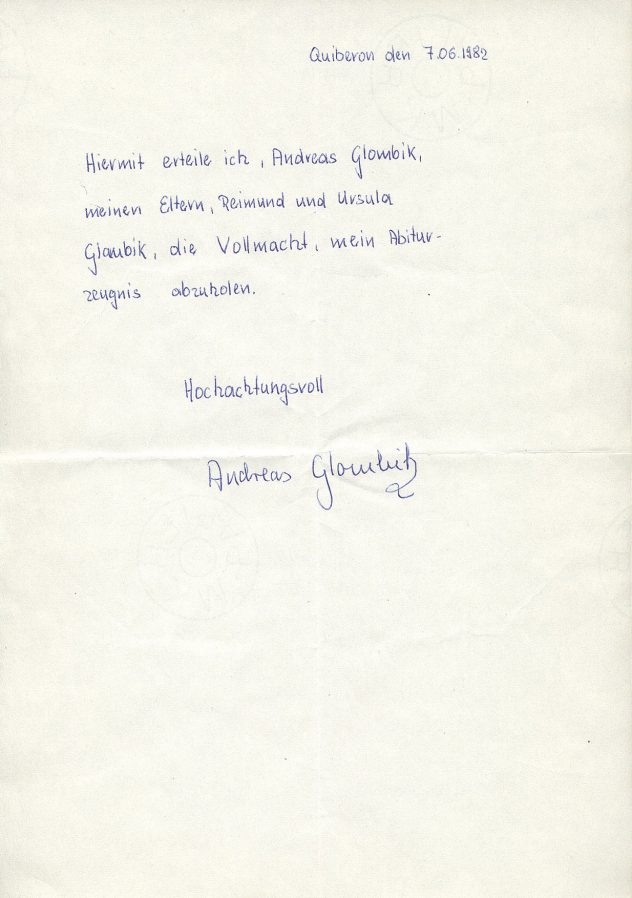 Quiberon den 7.06.1982
Hiermit erteile ich, Andreas Glombik,
meinen Eltern, Reimund und Ursula
Glombik, die Vollmacht, mein Abitur-
zeugnis abzuholen.
Hochachtungsvoll
Andreas Glombik